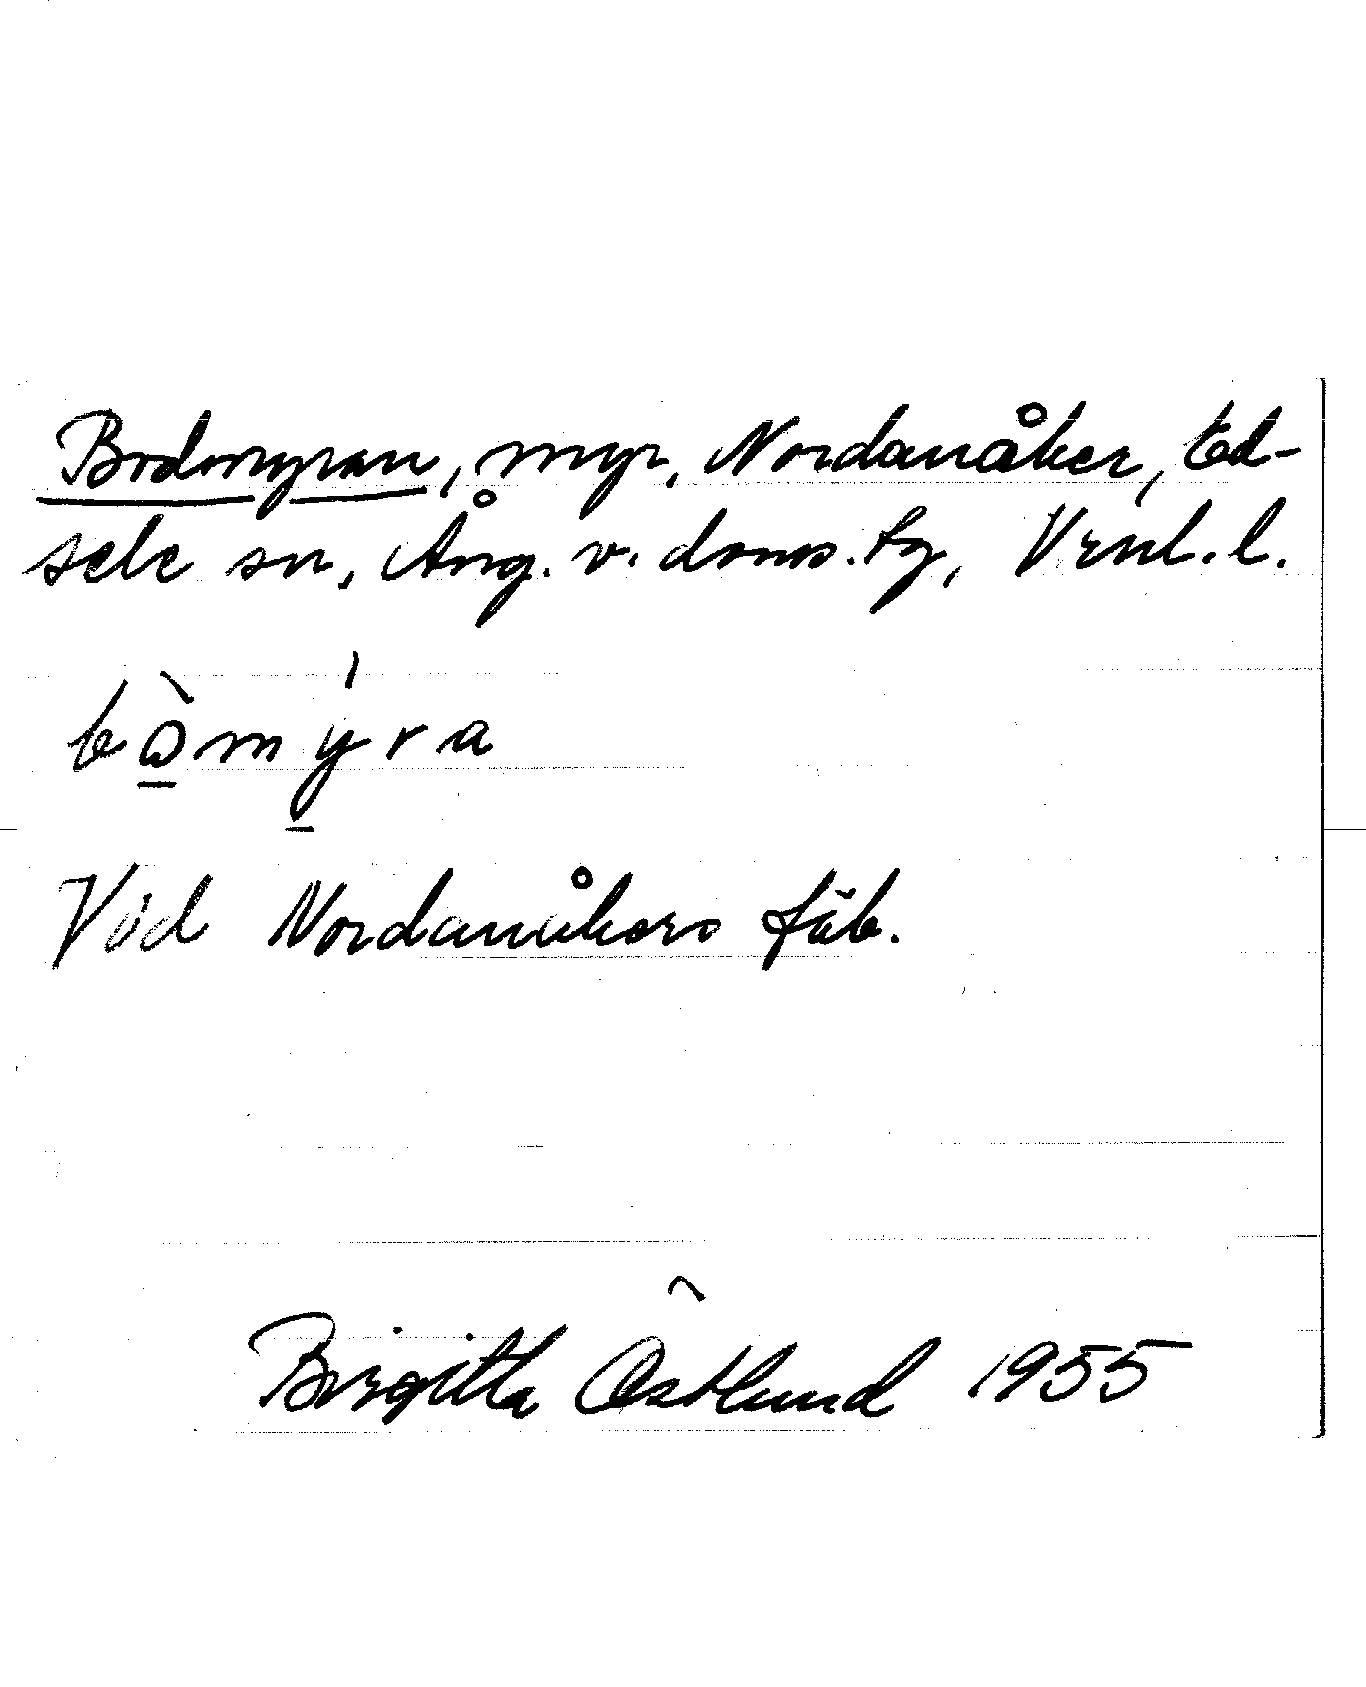 Bodmyran, myr, Nordanåker, Ed-
sele sn, Ång. v. doms. tg, Vrnl. l.
bòmýra
Vid Nordanåkers fäb.
Birgitta Östlund 1955